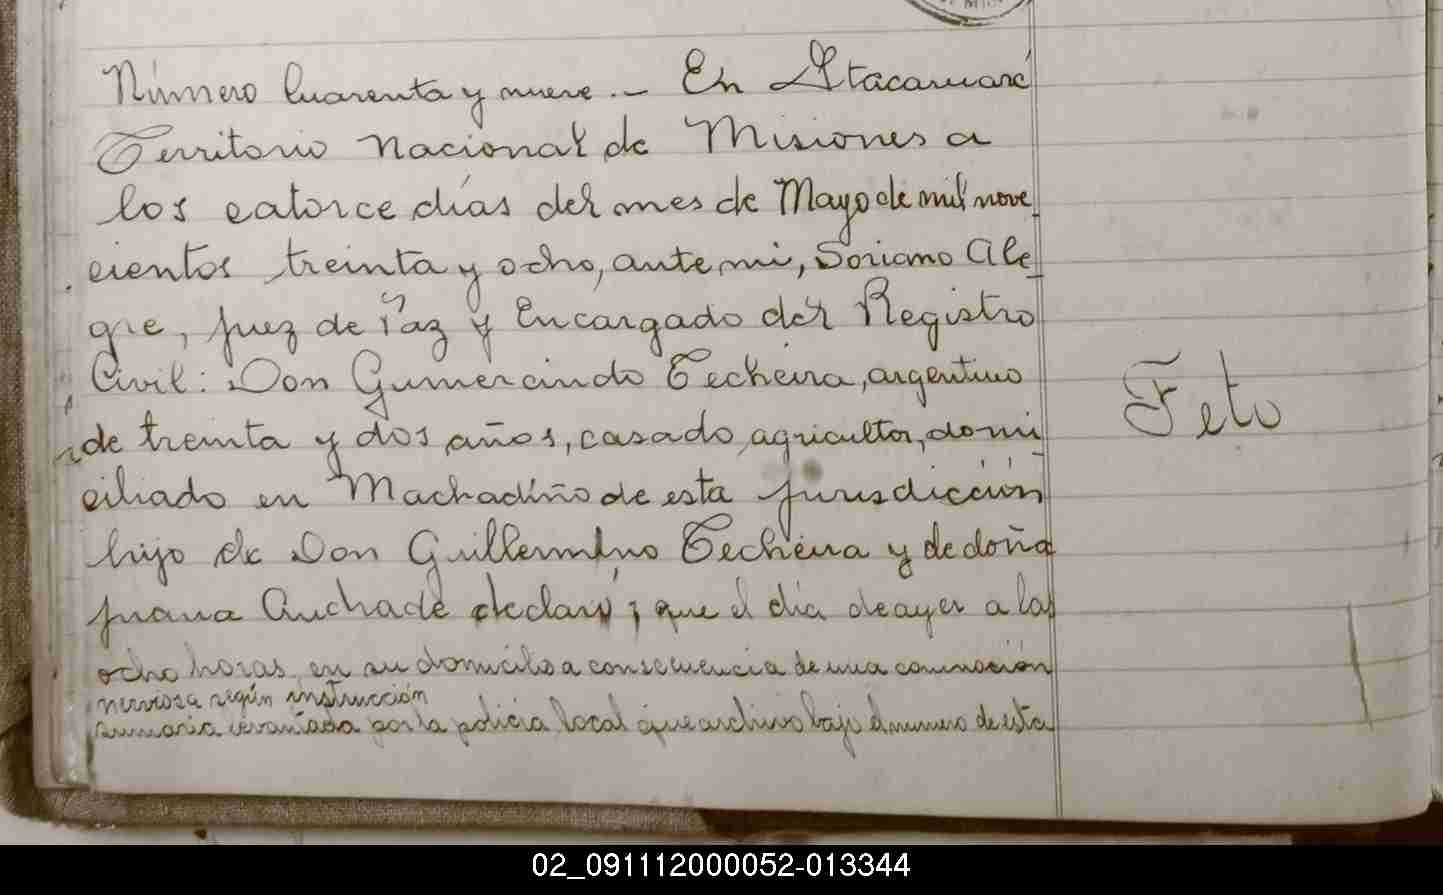 Número Cuarenta y nueve.- En Itacaruaré
Territorio Nacional de Misiones a
los catorce días del mes de Mayo de mil nove
cientos treinta y ocho, ante mi, Soriano Ale
gre, Juez de Paz y Encargado del Registro
Civil: Don Gumercindo Techeira, argentino
de treinta y dos años, casado, agricultor, domi
ciliado en Machadiño de esta jurisdicción
hijo de Don Guillermino Techeira y de doña
Juana Andrade declaró; que el día de ayer a las
ocho horas, en su domicilio a consecuencia de una conmoción
nerviosa según instrucción
sumaria levantada por la policia local que archivo bajo el numero de esta
Feto
02_091112000052-013344